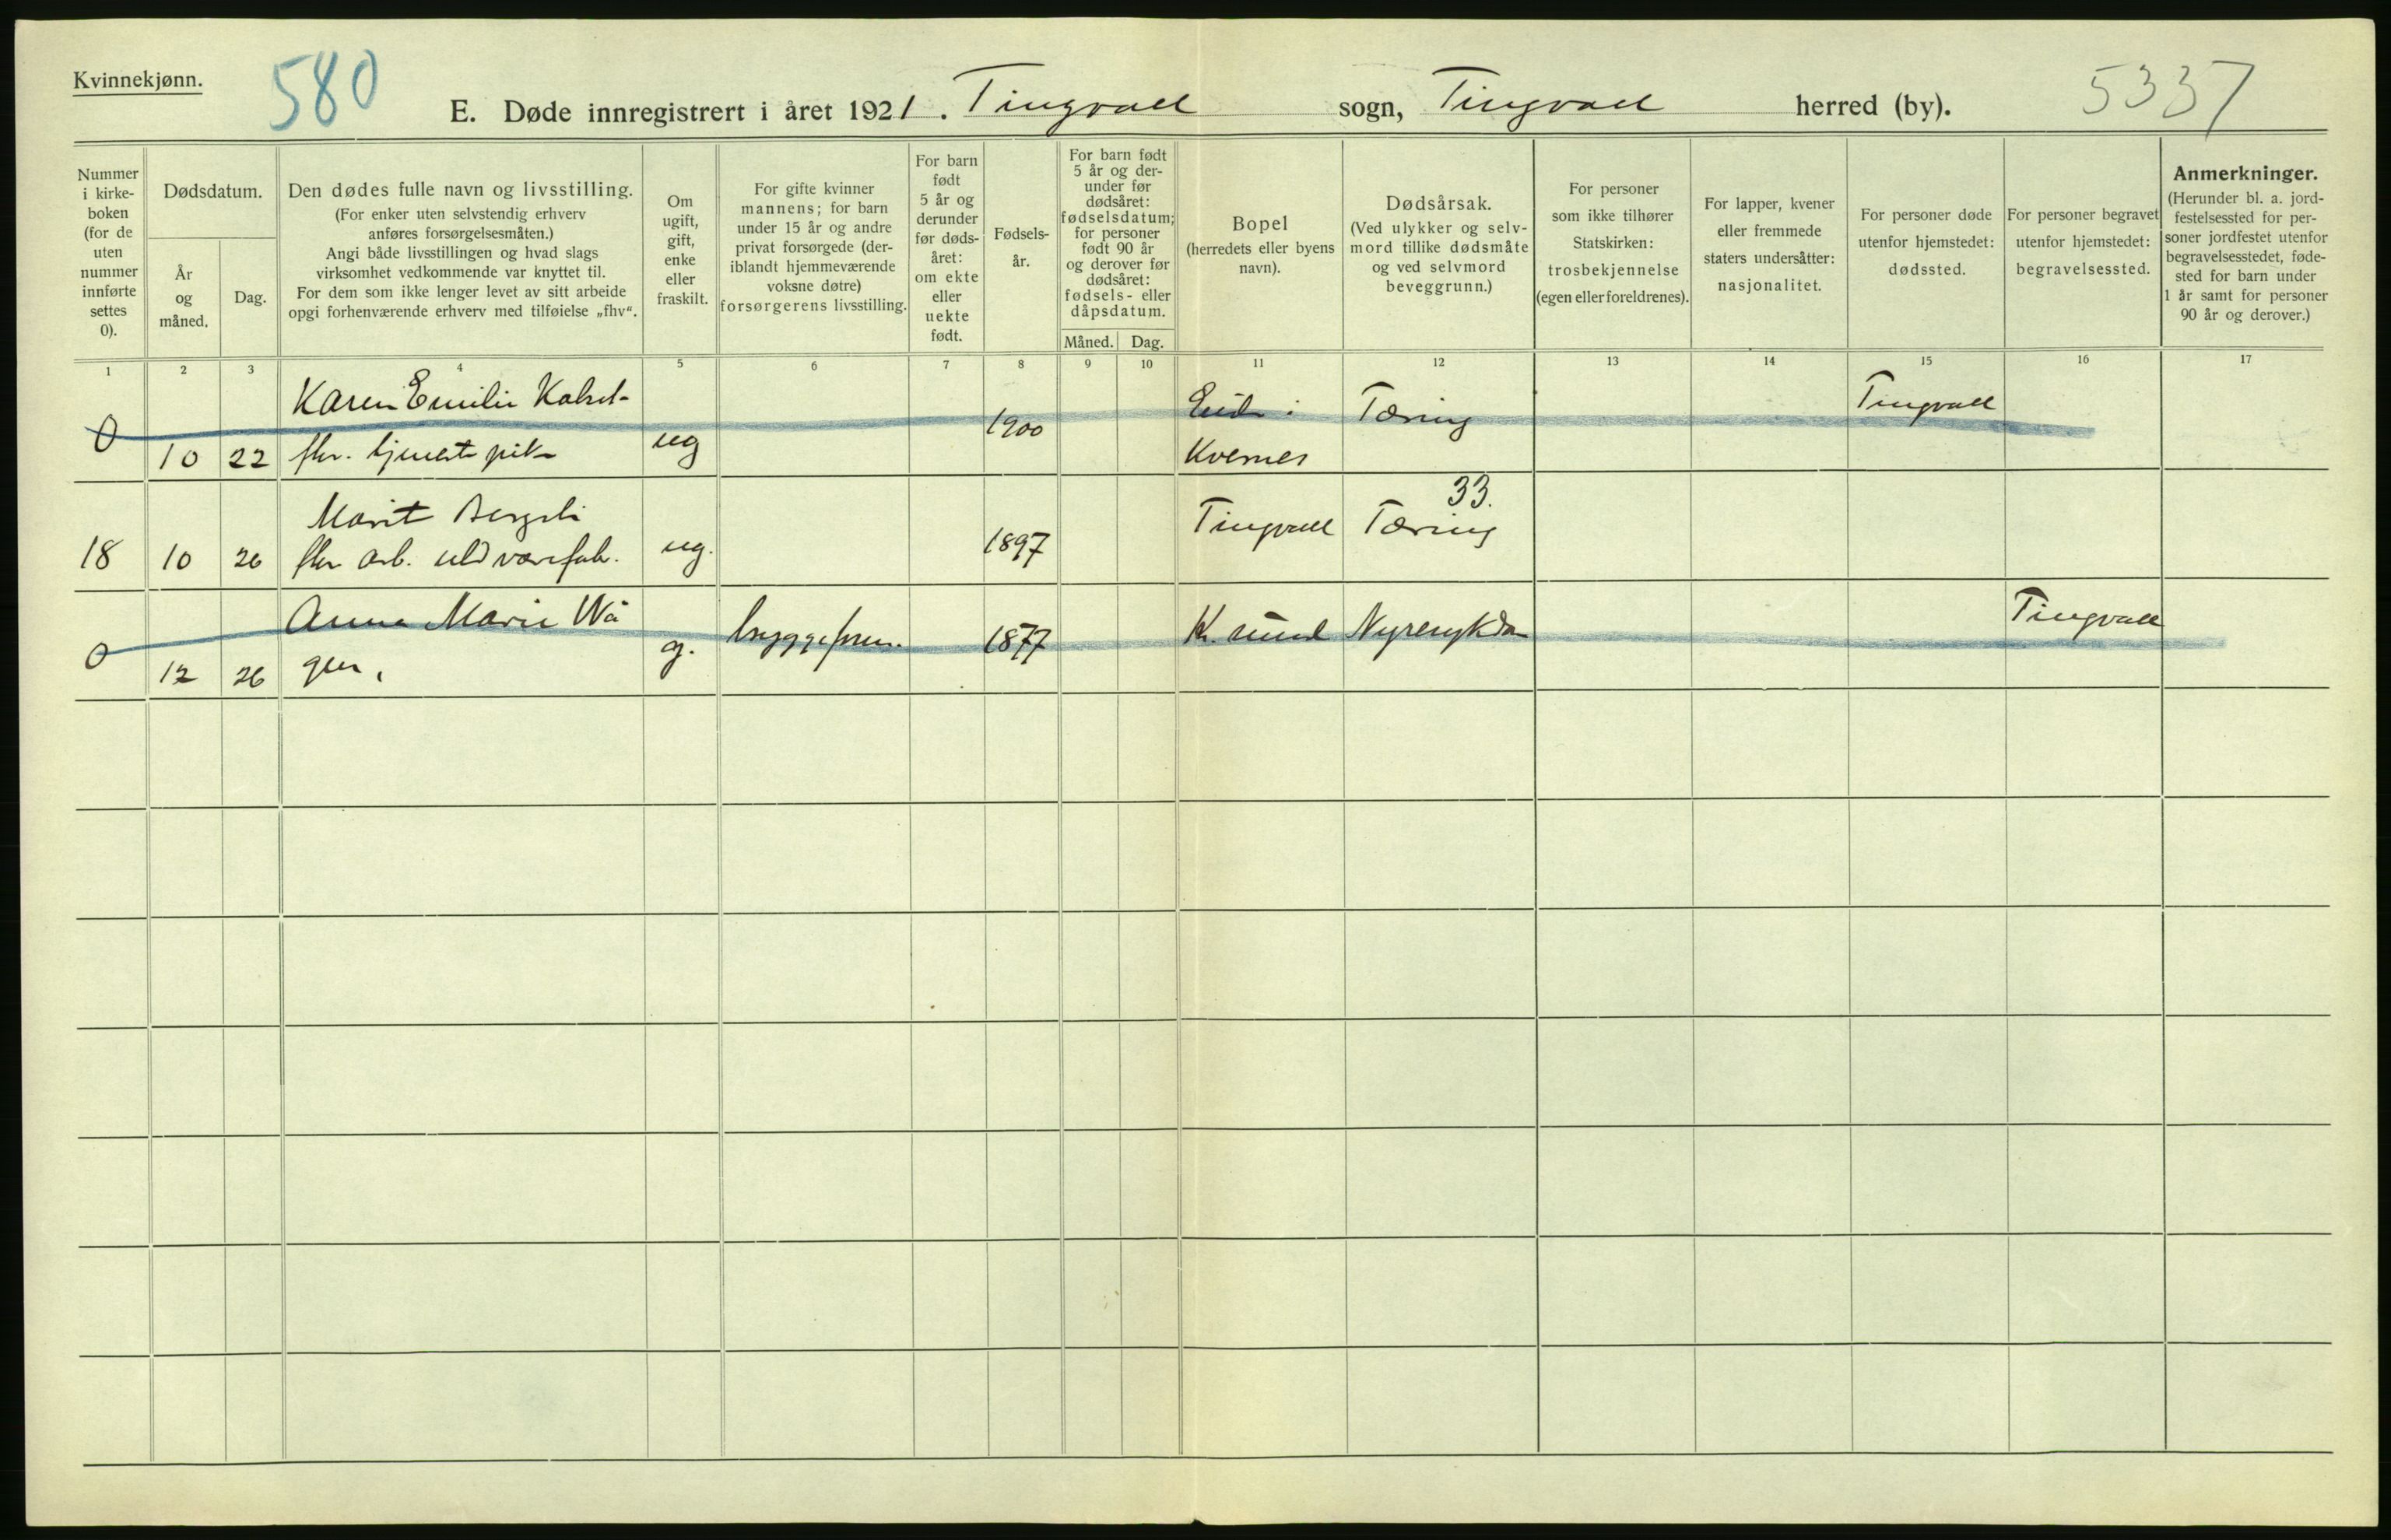 Kvinnekjønn.
580
E. Døde innregistrert i året 1921. Tingvoll sogn, Tingvoll herred (by).
5337
Nummer i kirke-boken (for de uten nummer innførte settes 0).
Dødsdatum.
År og måned.
Dag.
Den dødes fulle navn og livsstilling.
(For enker uten selvstendig erhverv
anføres forsørgelsesmåten.)
Angi både livsstillingen og hvad slags
virksomhet vedkommende var knyttet til.
For dem som ikke lenger levet av sitt arbeide
opgi forhenværende erhverv med tilføielse „fhv“.
Om
ugift,
gift,
enke
eller
fraskilt.
For gifte kvinner
mannens; for barn
under 15 år og andre
privat forsørgede (der-
iblandt hjemmeværende
voksne døtre)
forsørgerens livsstilling.
For barn
født
5 år og
derunder
før døds-
året:
om ekte
eller
uekte
født.
Fødsels-
år.
For barn født
5 år og der-
under før
dødsåret:
fødselsdatum;
for personer
født 90 år
og derover før
dødsåret:
fødsels- eller
dåpsdatum.
Måned. Dag.
Bopel
(herredets eller byens
navn).
Dødsårsak.
(Ved ulykker og selv-
mord tillike dødsmåte
og ved selvmord
beveggrunn.)
For personer
som ikke tilhører
Statskirken:
trosbekjennelse
(egen eller foreldrenes).
For lapper, kvener
eller fremmede
staters undersåtter:
nasjonalitet.
For personer døde
utenfor hjemstedet:
dødssted.
For personer begravet
utenfor hjemstedet:
begravelsessted.
Anmerkninger.
(Herunder bl. a. jord-
festelsessted for per-
soner jordfestet utenfor
begravelsesstedet, føde-
sted for barn under
1 år samt for personer
90 år og derover.)
1 2 3 4 5 6 7 8 9 10 11 12 13 14 15 16 17
Karen Emilie
0 10 22 fhv. tjenestepike ug 1900 Eide i Kvernes Tæring Tingvoll
33.
Marit Bergsli
18 10 26 fhv arb. uldvarefab. ug. 1897 Tingvoll Tæring
Anna Marie Wå
0 12 26 gen, g. bryggeform. 1877 Kr.sund Nyresykdom Tingvoll